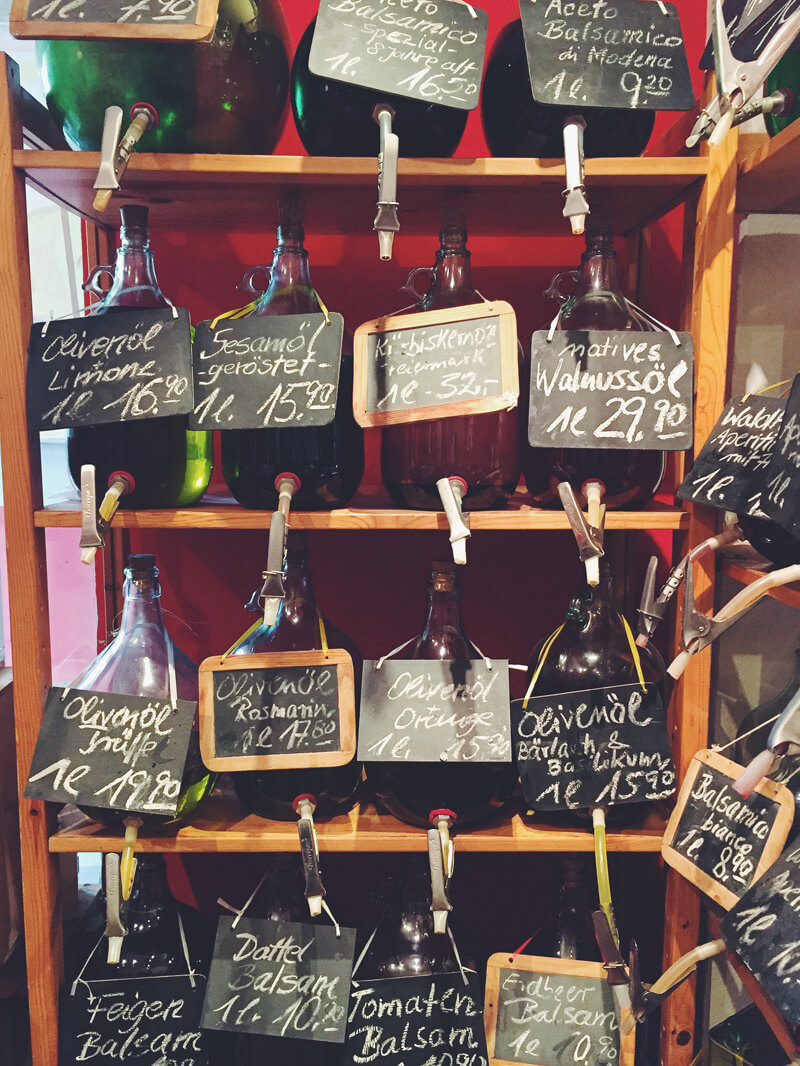 1l. 7.90
Aceto
Balsamico
-spezial-
8 Jahre alt
1l. 16.50
Aceto
Balsamico
di Modena
1l. 9.20
Olivenöl
Limone
1l 16.90
Sesamöl
-geröstet-
1l. 15.90
Kürbiskernöl
Steiermark
1l - 32,-
natives
Walnussöl
1l 29.90
1l.
Olivenöl
Trüffel
1l 19.90
Olivenöl
Rosmarin
1l 17.80
Olivenöl
Orange
1l. 15.90
Olivenöl
Bärlauch &
Basilikum
1l 15.90
Balsamico
bianco
1l. 8.90
Feigen
Balsam
Dattel
Balsam
1l. 10.90
Tomaten
Balsam
10.90
Erdbeer
Balsam
1l 10.90